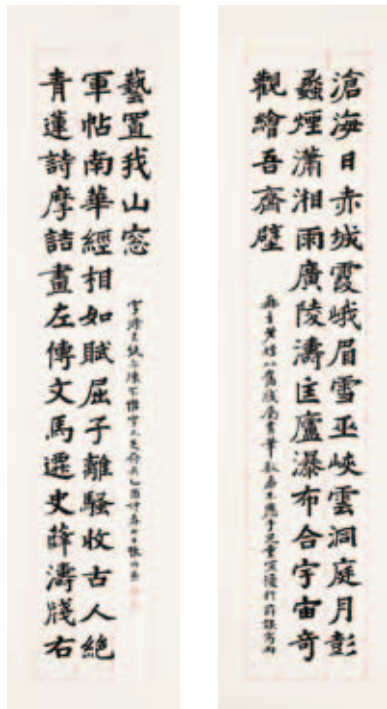 滄海日赤城霞峨眉雪巫峽雲洞庭月彭
蠡煙瀟湘雨廣陵濤匡廬瀑布合宇宙奇
觀繪吾齋壁
青蓮詩摩詰畫左傳文馬遷史薛濤牋右
軍帖南華經相如賦屈子離騷收古人絕
藝置我山窓